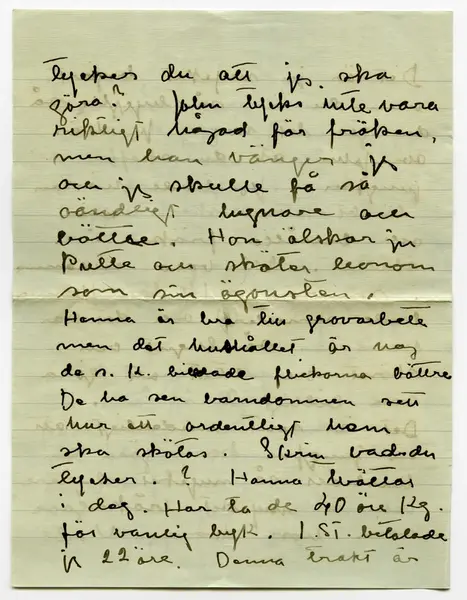 tycker du att jag ska
göra? John tycks inte vara
riktigt hågad för fröken,
men han vänjer jag
och jag skulle få så
oändligt lugnare och
bättre. Hon älskar ju
Putte och sköter honom
som sin ögonsten.
Hanna är bra till grovarbete
men det hushållet är nog
de s. k. bildade flickorna bättre
De ha sen barndommen sett
hur ett ordentligt hem
ska skötas. Skriv vad du
tycker. ? Hanna tvättar
i dag. Här ta de 40 öre Kg.
för vanlig byk. I St. betalade
jg 22 öre. Denna trakt är